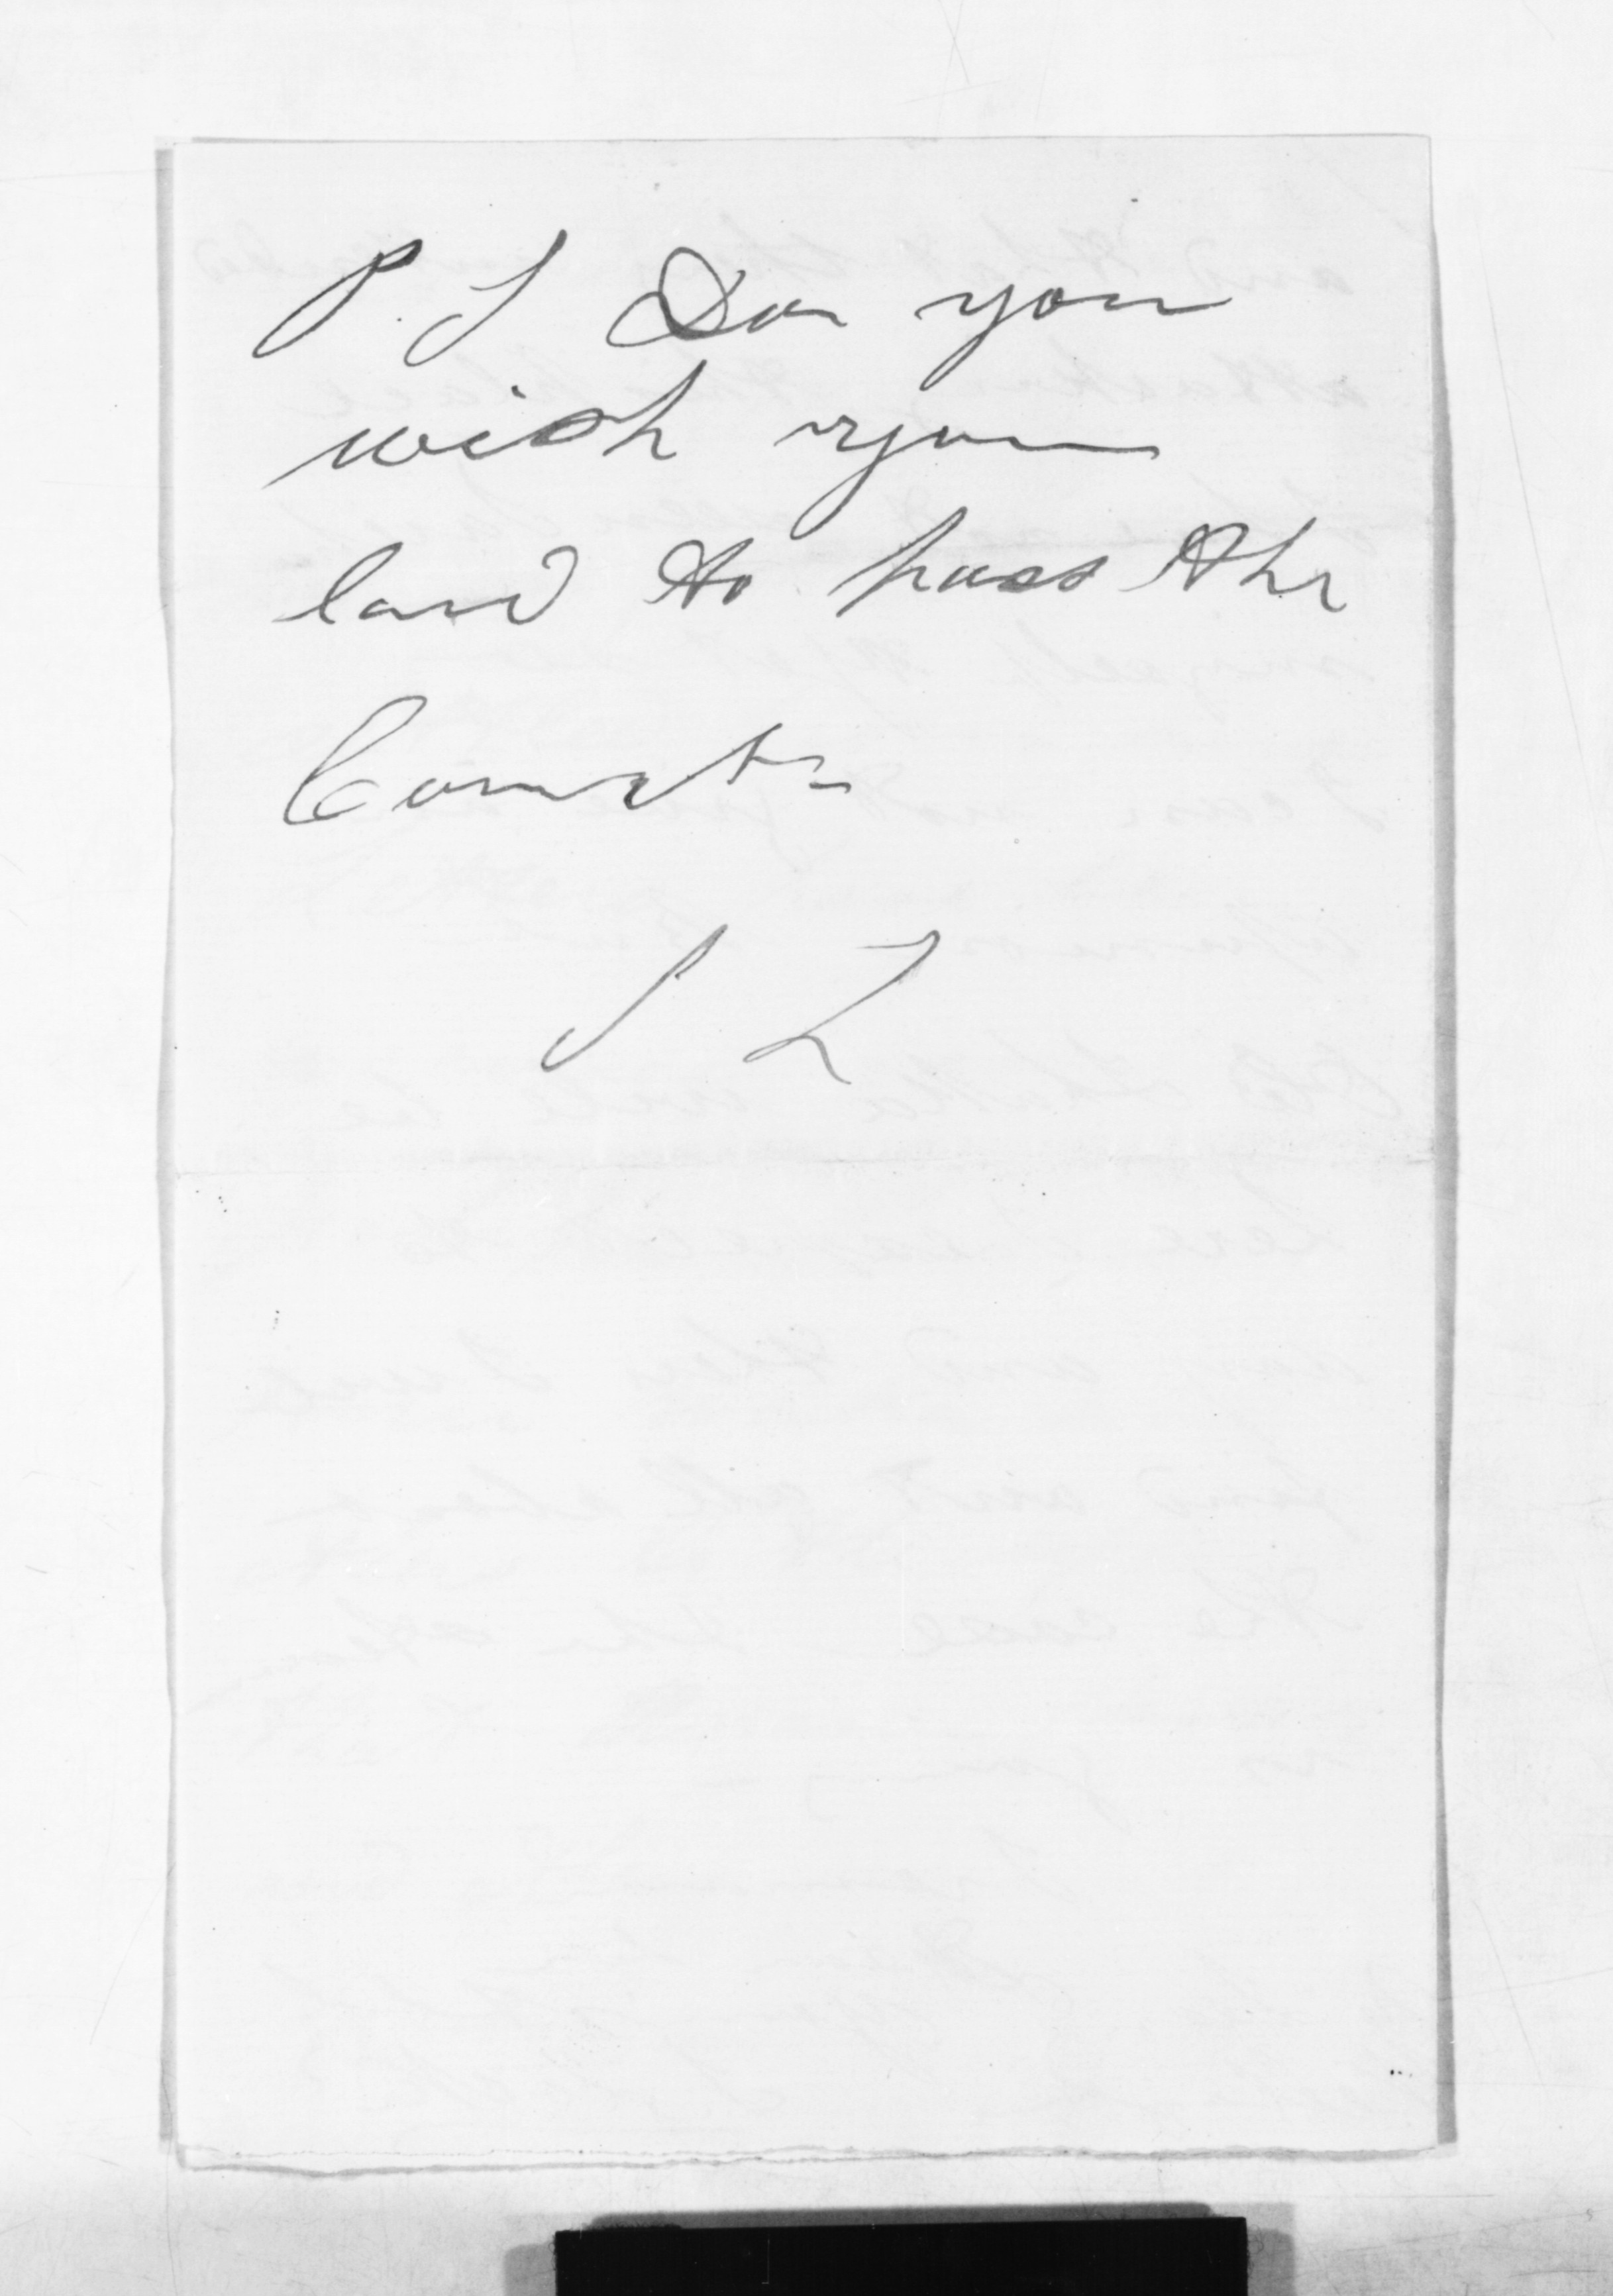 P. S Do you
wish your
land to pass the
Courts
S L